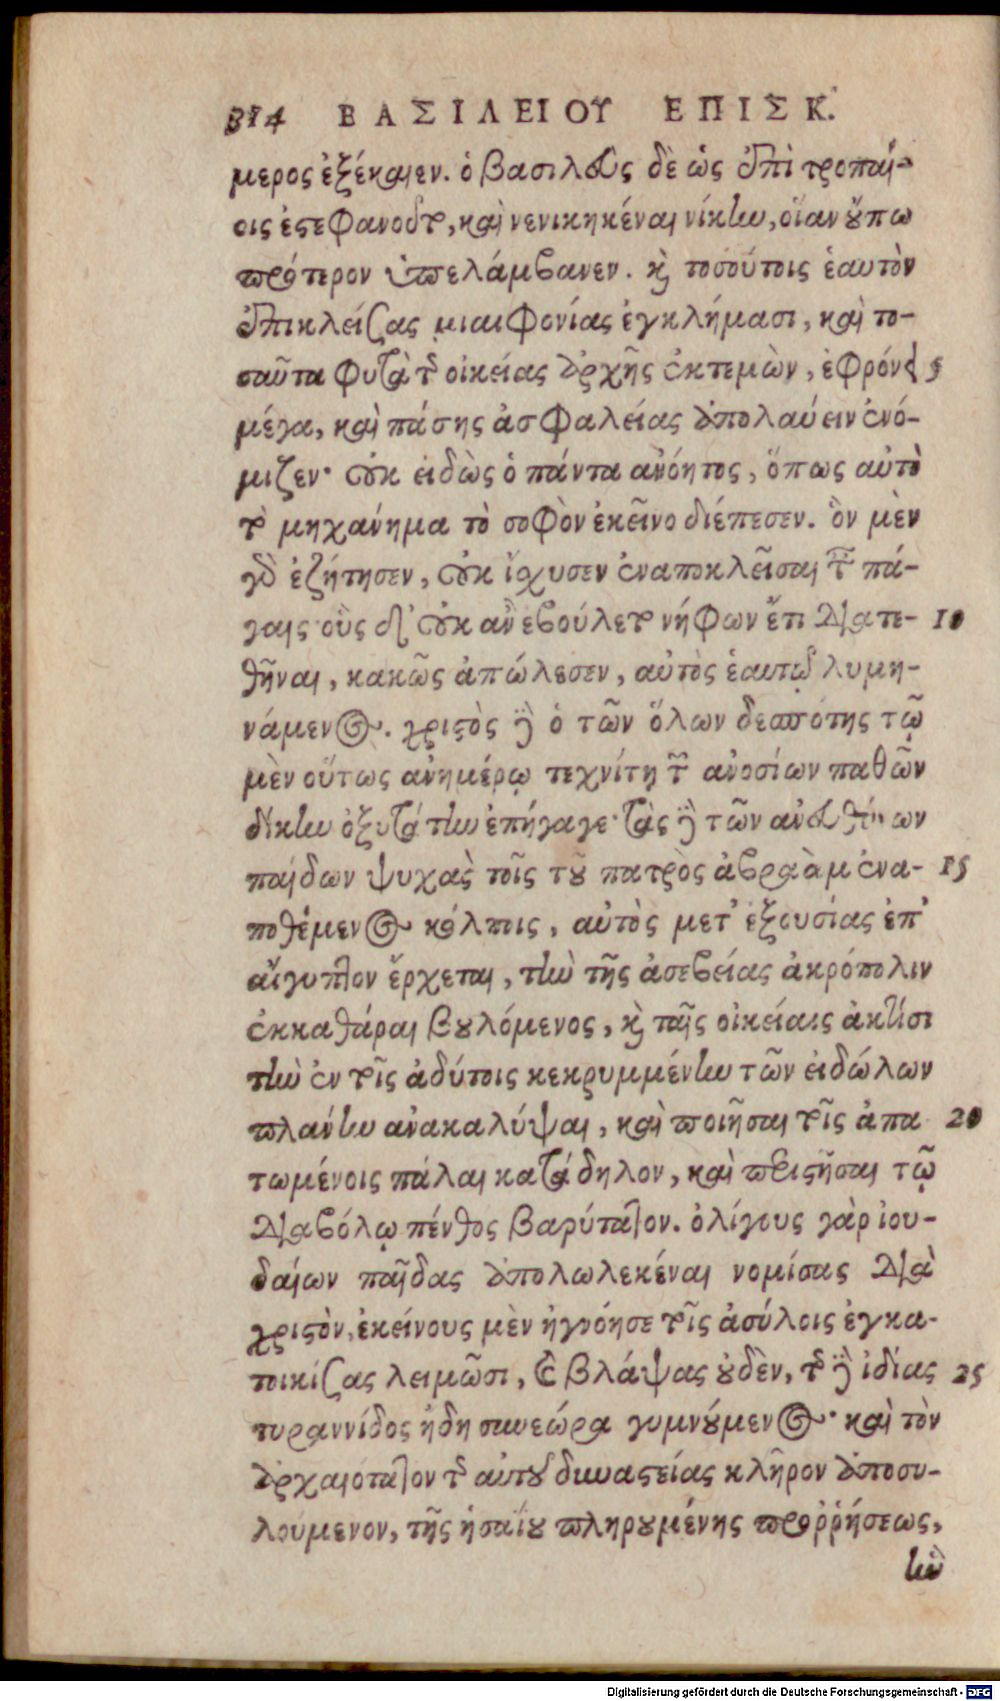 314 ΒΑΣΙΛΕΙΟΥ ΕΠΙΣΚ.
μερος ἐξέκαιεν. ὁ βασιλεὺς δὲ ὡς ἐπὶ τροπαί-
οις ἐστεφανοῦτο, καὶ νενικηκέναι νίκην, οἵαν οὔπω
πρότερον ὑπελάμβανεν. καὶ τοσούτοις ἑαυτὸν
ἐπικλείσας μιαιφονίας ἐγκλήμασι, καὶ το-
σαῦτα φυτὰ τῆς οἰκείας ἀρχῆς ἐκτεμὼν, ἐφρόνει 5
μέγα, καὶ πάσης ἀσφαλείας ἀπολαύειν ἐνό-
μιζεν· οὐκ εἰδὼς ὁ πάντα ἀνόητος, ὅπως αὐτὸ
τὸ μηχάνημα τὸ σοφὸν ἐκεῖνο διέπεσεν. ὃν μὲν
γὰρ ἐζήτησεν, οὐκ ἴσχυσεν ἐναποκλεῖσαι ταῖς πά-
γαις· οὓς δ' οὐκ ἂν ἐβούλετο νήφων ἔτι διατε- 10
θῆναι, κακῶς ἀπώλεσεν, αὐτὸς ἑαυτῷ λυμη-
νάμενος. χριστὸς δὲ ὁ τῶν ὅλων δεσπότης τῷ
μὲν οὕτως ἀνημέρῳ τεχνίτῃ τῶν ἀνοσίων παθῶν
δίκην ὀξυτάτην ἐπήγαγε· τὰς δὲ τῶν ἀνευθύνων
παίδων ψυχὰς τοῖς τοῦ πατρὸς ἀβραὰμ ἐνα- 15
ποθέμενος κόλποις, αὐτὸς μετ' ἐξουσίας ἐπ'
αἴγυπτον ἔρχεται, τὴν τῆς ἀσεβείας ἀκρόπολιν
ἐκκαθάραι βουλόμενος, καὶ ταῖς οἰκείαις ἀκτῖσι
τὴν ἐν τοῖς ἀδύτοις κεκρυμμένην τῶν εἰδώλων
πλάνην ἀνακαλύψαι, καὶ ποιῆσαι τοῖς ἀπα 20
τωμένοις πάλαι κατάδηλον, καὶ περιστῆσαι τῷ
διαβόλῳ πένθος βαρύτατον. ὀλίγους γὰρ ἰου-
δαίων παῖδας ἀπολωλεκέναι νομίσας διὰ
χριστὸν, ἐκείνους μὲν ἠγνόησε τοῖς ἀσύλοις ἐγκα-
τοικίσας λειμῶσι, καὶ βλάψας οὐδὲν, τῆς δὲ ἰδίας 25
τυραννίδος ἤδη συνεώρα γυμνούμενος· καὶ τὸν
ἀρχαιότατον τῆς αὐτοῦ δυναστείας κλῆρον ἀποσυ-
λούμενον, τῆς ἡσαΐου πληρουμένης προῤῥήσεως,
ἣν
Digitalisierung gefördert durch die Deutsche Forschungsgemeinschaft - DFG